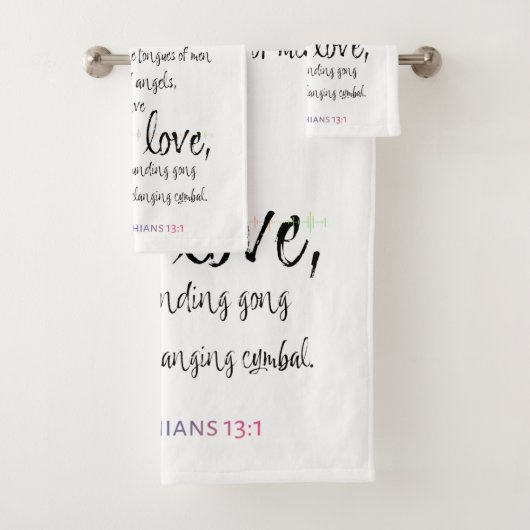 e tongues of men
angels,
ve
love,
unding gong
clanging cymbal.
HIANS 13:1
love,
nding gong
langing cymbal.
HIANS 13:1
love,
nding gong
anging cymbal.
HIANS 13:1